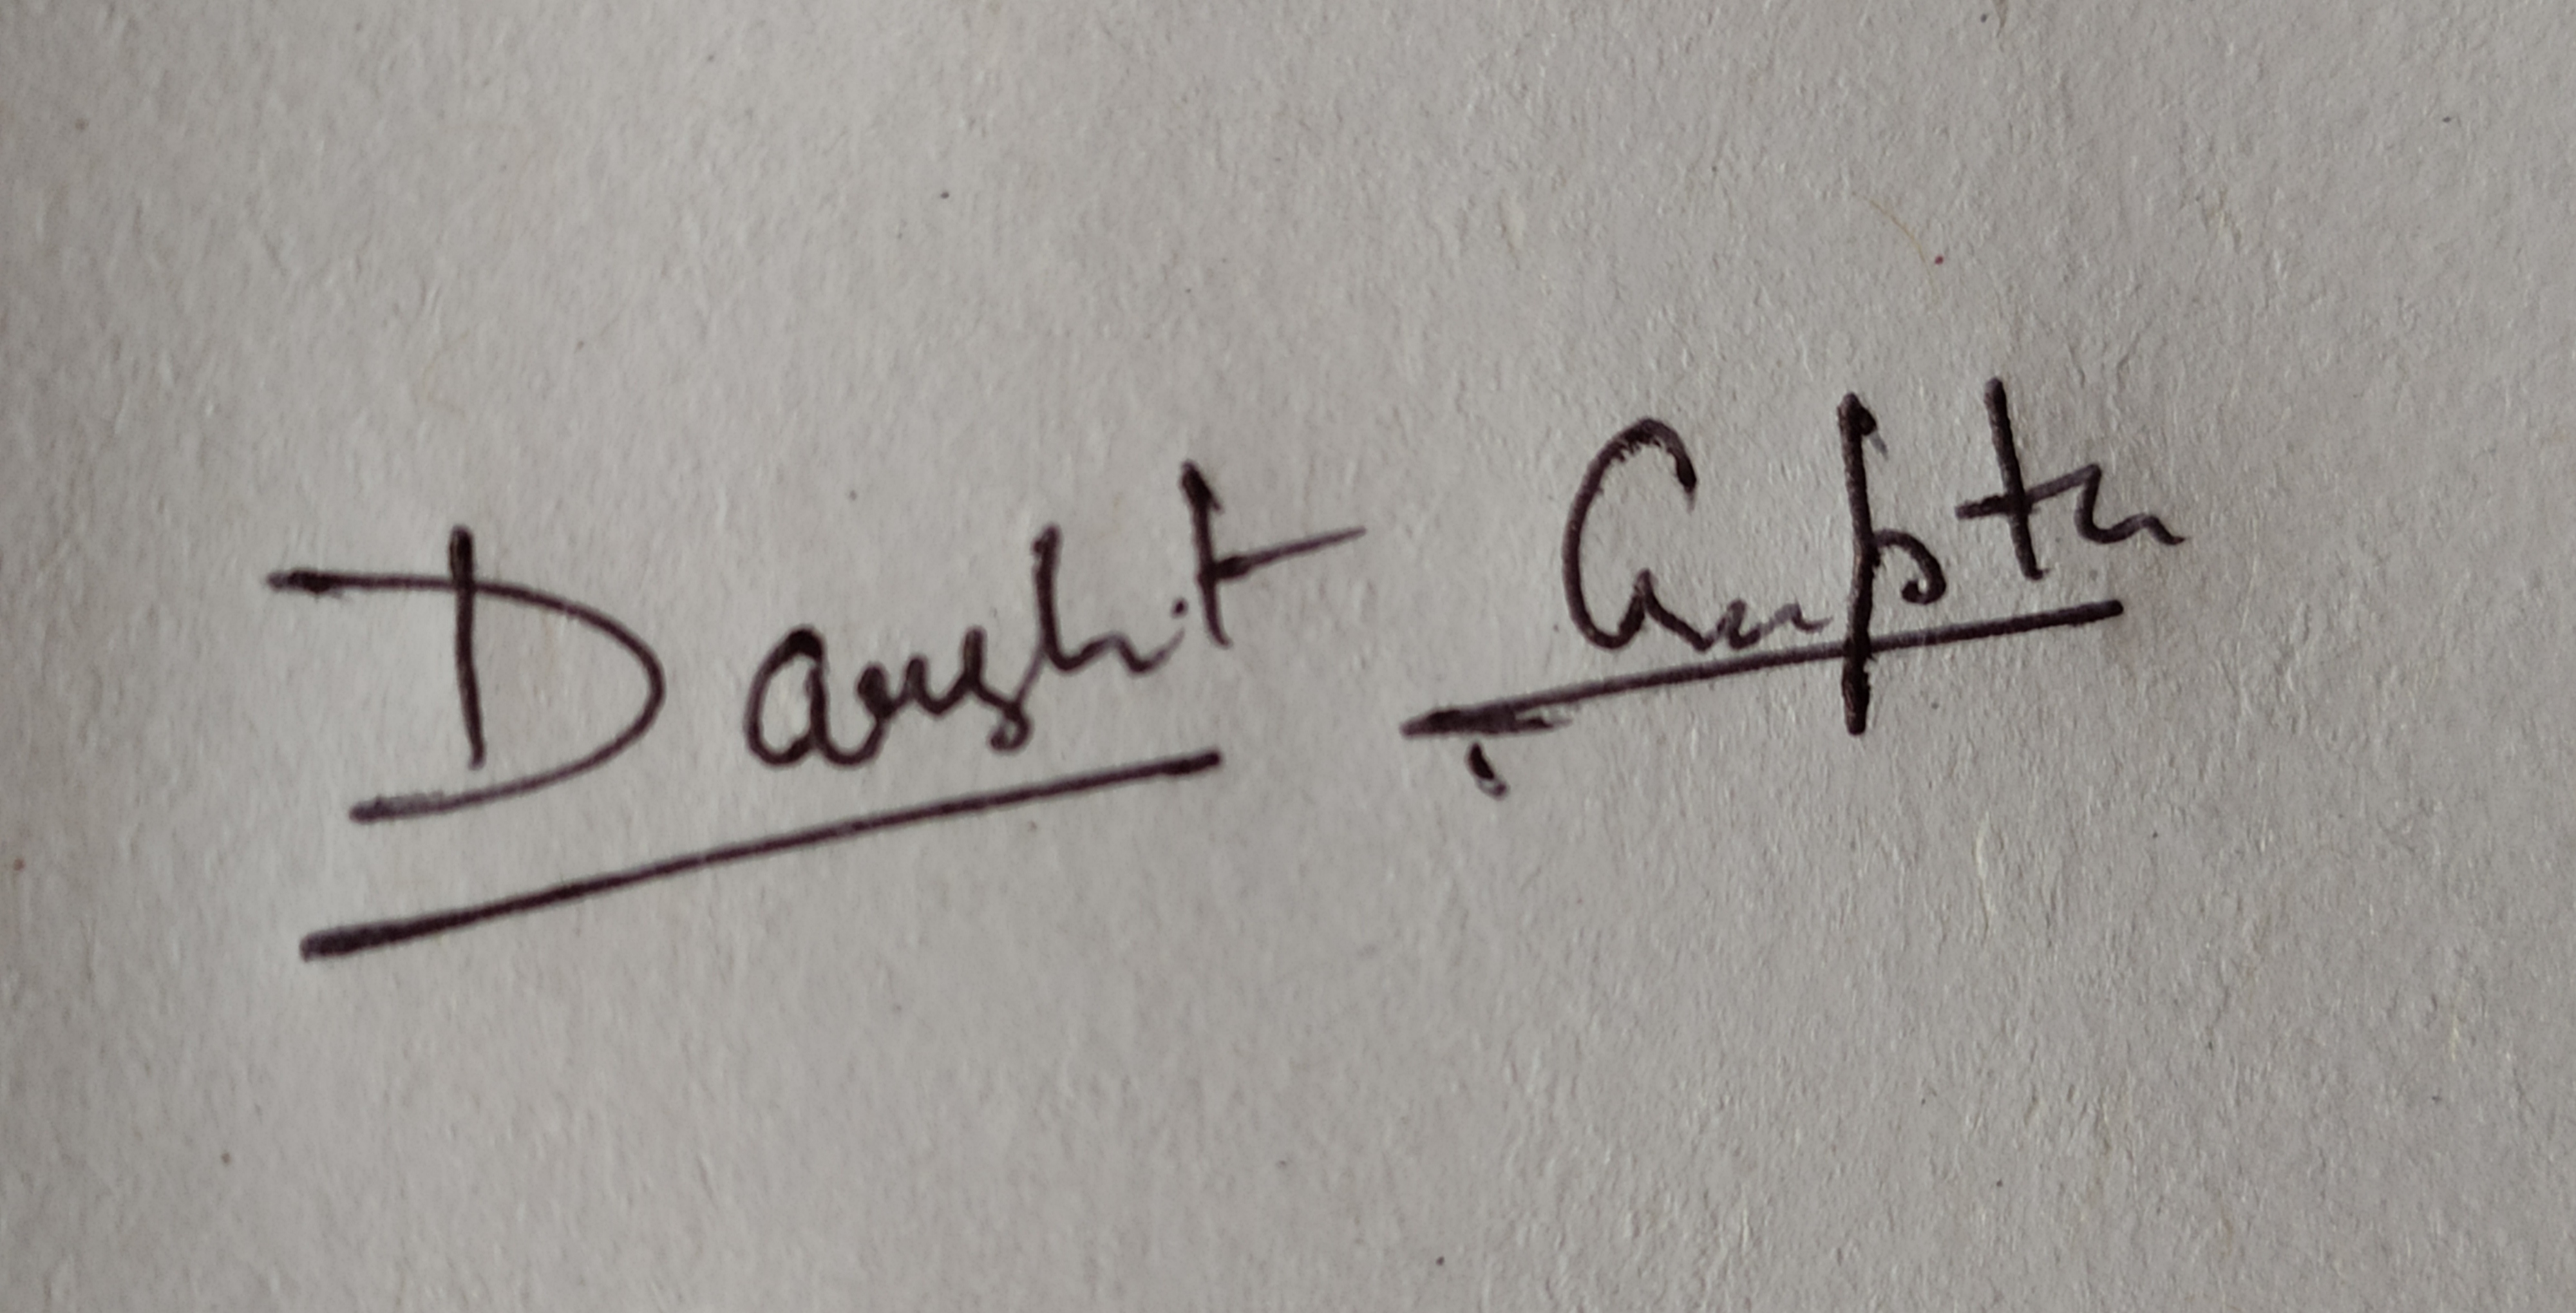 Darshit Gupta